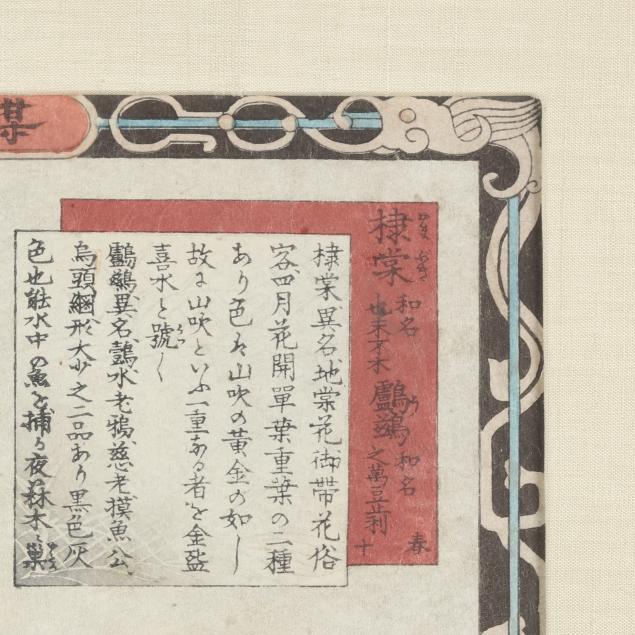 棠
棣棠 和名 也末不木 鸕鷀 和名 之萬豆止利
春
十
棣棠異名地棠花御帯花俗
客四月花開單葉重葉の二種
あり色は山吹の黄金の如し
故に山吹といふ一重ある者を金盌
喜水と號く
鸕鷀異名鷧水老鴉慈老摸魚公
烏頭綱形大少之二品あり黒色灰
色也能水中の魚を捕る夜林木に巣